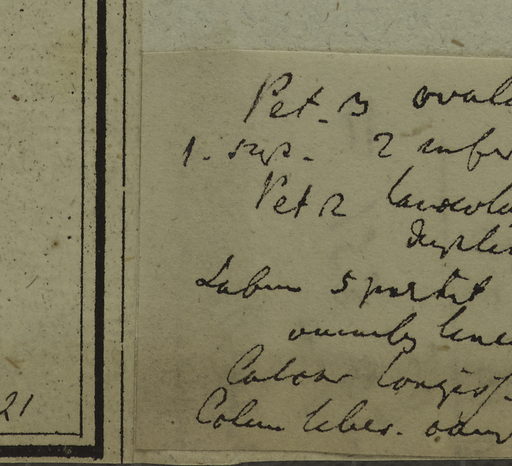 Pet. 3 oval
1. sup. 2 infer
Pet 2 lanceola
duplic
Labium 5 partit
omnibus linea
Calcar longio
Colum liber.
21